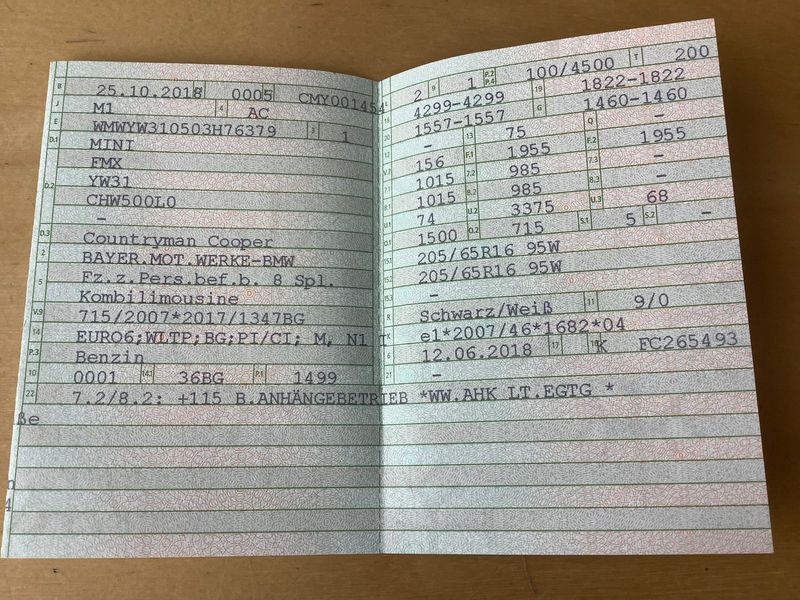 B 25.10.2018 0005 CMY001454
J M1 4 AC
E WMWYW310503H76379 3 1
D.1 MINI
FMX
D.2 YW31
CHW500L0
–
D.3 Countryman Cooper
2 BAYER.MOT.WERKE-BMW
5 Fz.z.Pers.bef.b. 8 Spl.
Kombilimousine
V.9 715/2007*2017/1347BG
14 EURO6;WLTP;BG;PI/CI; M, N1 I
P.3 Benzin
10 0001 14.1 36BG P.1 1499
22 7.2/8.2: +115 B.ANHÄNGEBETRIEB *WW.AHK LT.EGTG *
ße
4
L 2 9 1 P.2 P.4 100/4500 T 200
18 4299-4299 19 1822-1822
20 1557-1557 G 1460-1460
– 13 75 Q –
V.7 156 F.1 1955 F.2 1955
7.1 1015 7.2 985 7.3 –
8.1 1015 8.2 985 8.3 –
U.1 74 U.2 3375 U.3 68
O.1 1500 O.2 715 S.1 5 S.2 –
15.1 205/65R16 95W
15.2 205/65R16 95W
15.3 –
R Schwarz/Weiß 11 9/0
K e1*2007/46*1682*04
6 12.06.2018 17 K 16 FC265493
21 –